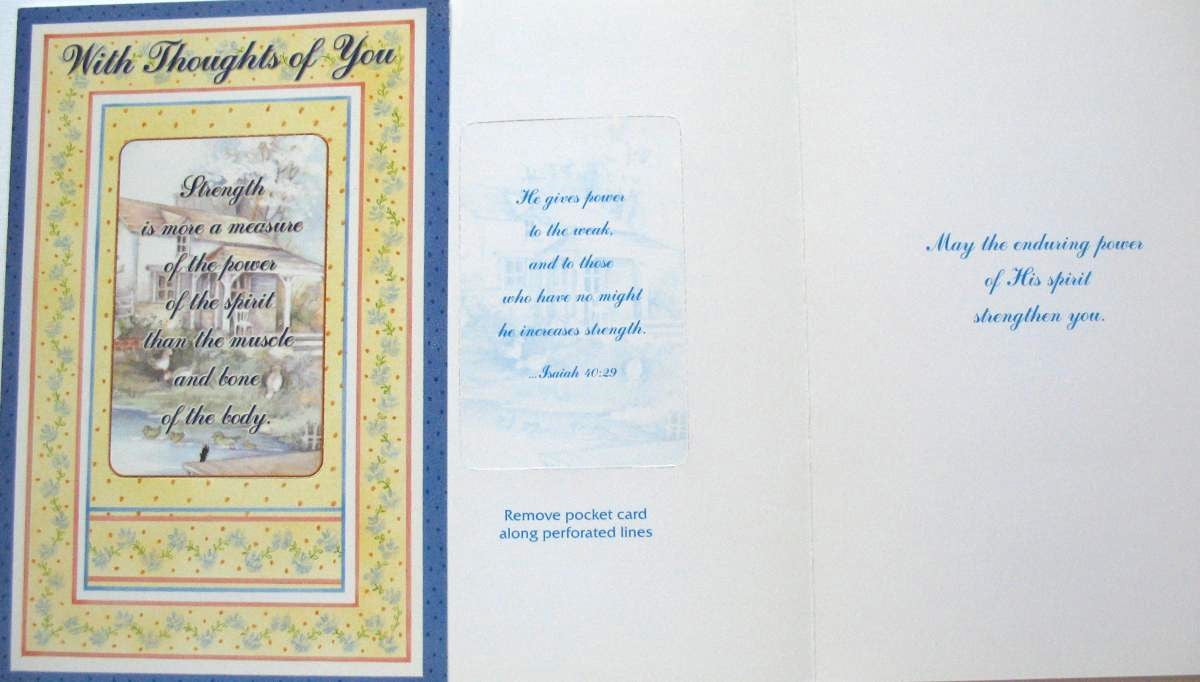 With Thoughts of You
Strength
is more a measure
of the power
of the spirit
than the muscle
and bone
of the body.
He gives power
to the weak,
and to those
who have no might
he increases strength.
...Isaiah 40:29
Remove pocket card
along perforated lines
May the enduring power
of His spirit
strengthen you.